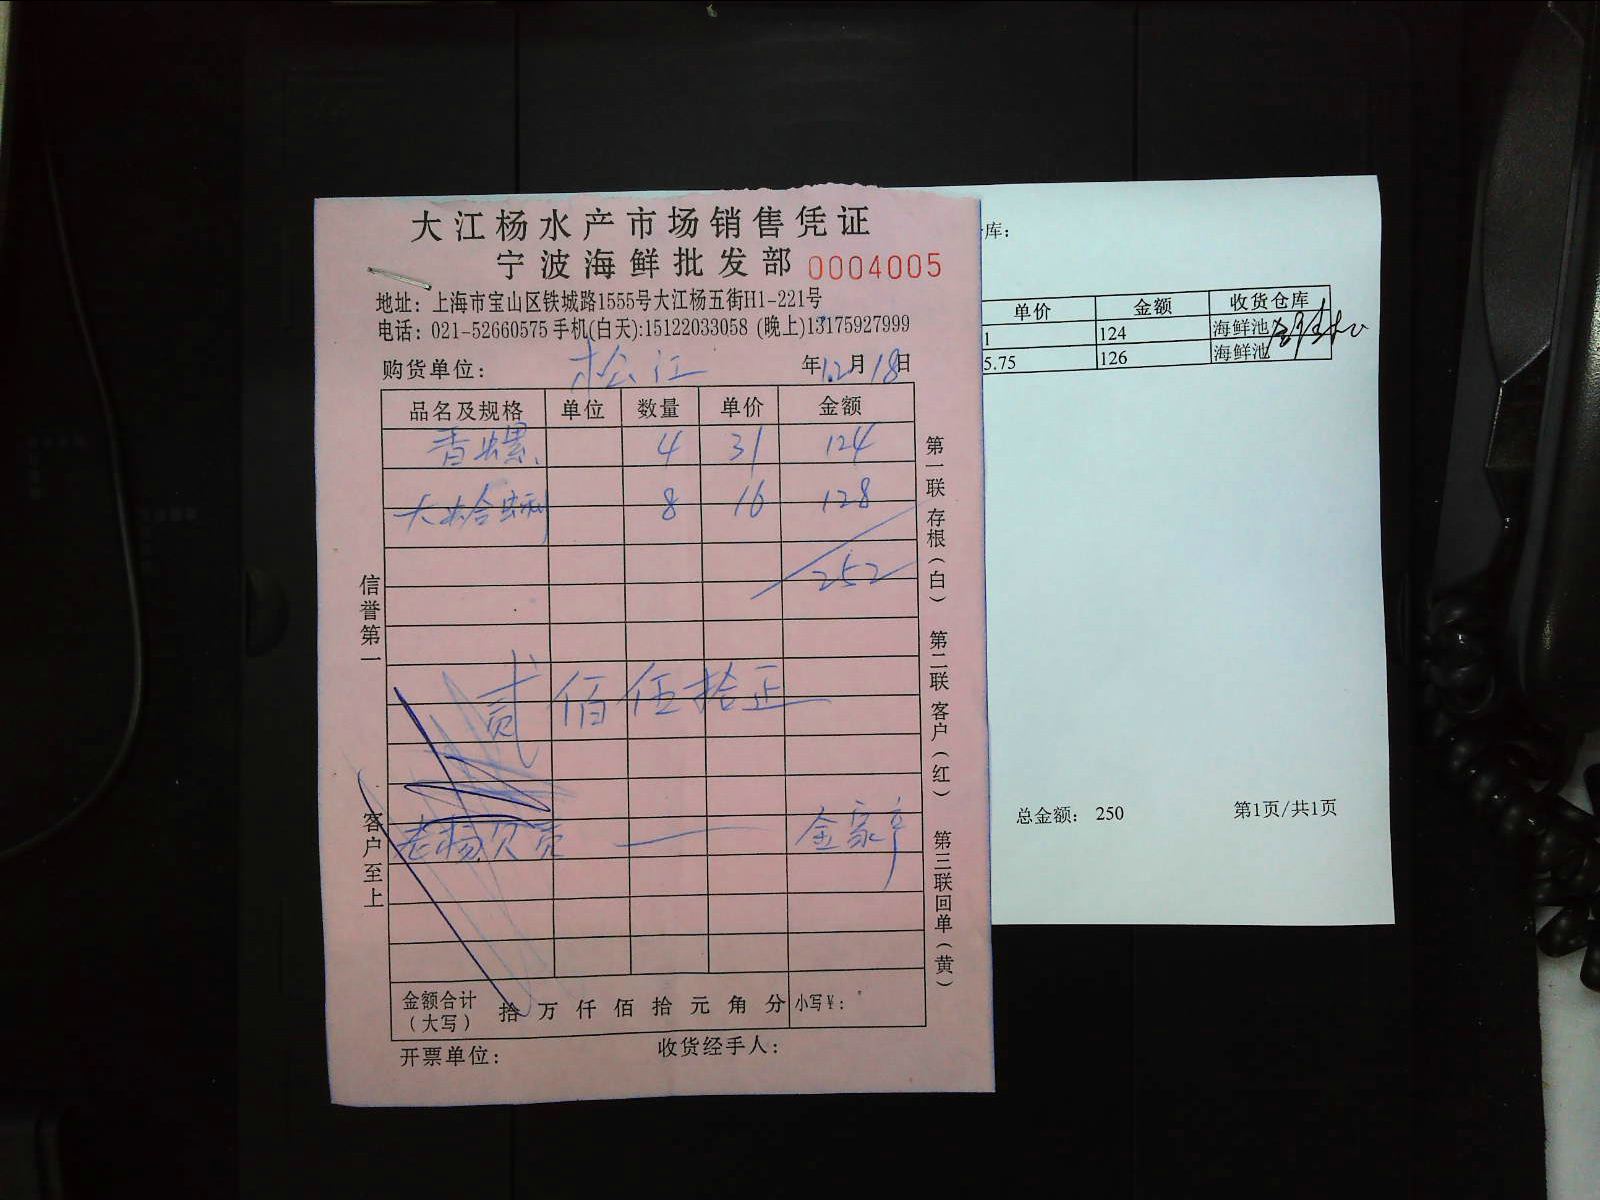 大江杨水产市场销售凭证
宁波海鲜批发部 0004005
地址：上海市宝山区铁城路1555号大江杨五街H1-221号
电话：021-52660575 手机(白天):15122033058 (晚上)13175927999
购货单位： 松江 年12月18日
品名及规格 单位 数量 单价 金额
香螺、 4 31 124
大蛤蜊 8 16 128
252
贰佰伍拾正
金额合计（大写） 拾 万 仟 佰 拾 元 角 分 小写￥：
开票单位： 收货经手人：
信誉第一
客户至上
第一联 存根（白）
第二联 客户（红）
第三联 回单（黄）
库：
单价 金额 收货仓库
1 124 海鲜池
5.75 126 海鲜池
总金额： 250 第1页/共1页